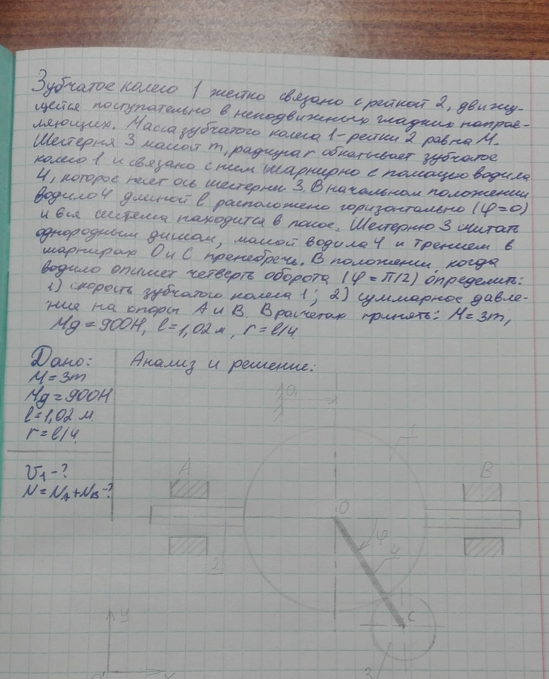 Зубчатое колесо 1 жестко связано с рейкой 2, движу-
щейся поступательно в неподвижных гладких направ-
ляющих. Масса зубчатого колеса 1-рейки 2 равна M.
Шестерня 3 массой m, радиуса r обкатывает зубчатое
колесо 1 и связано с ним шарнирно с помощью водила
4, которое несет ось шестерни 3. В начальном положении
водило 4 длиной l расположено горизонтально (φ=0)
и вся система находится в покое. Шестерню 3 считать
однородным диском, массой водила 4 и трением в
шарнирах O и C пренебречь. В положении, когда
водило опишет четверть оборота (φ=π/2) определить:
1) скорость зубчатого колеса 1; 2) суммарное давле-
ние на опоры A и B. В расчетах принять: M=3m,
Mg=900H, l=1,02м, r=l/4
Дано: Анализ и решение:
M=3m
Mg=900H
l=1,02 м
r=l/4
V1-?
N=NA+NB-?
1
A
B
O
φ
4
2
C
y
x
3